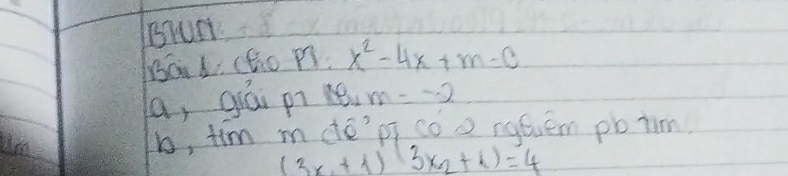 BTVN:
Bài 1: Cho PT: x² - 4x + m = 0
a, giải pt khi m = -2
b, tìm m để pt có 2 nghiệm pb tm
(3x₁ + 1)(3x₂ + 1) = 4